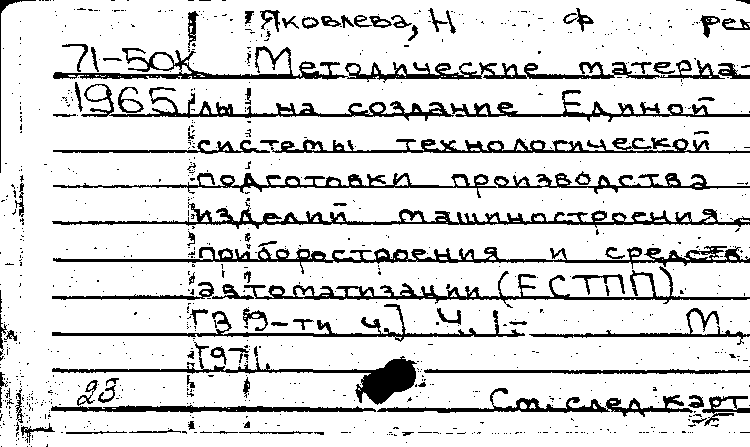 Яковлева, Н Ф рел
71-50к Методические материа-
1965 лы на создание Единой
системы технологической
подготовки производства
изделий машиностроения,
приборостроения и средств
автоматизации (ЕСТПП).
[В 9-ти ч.] Ч. 1- М.,
1971.
23 См. след. карт